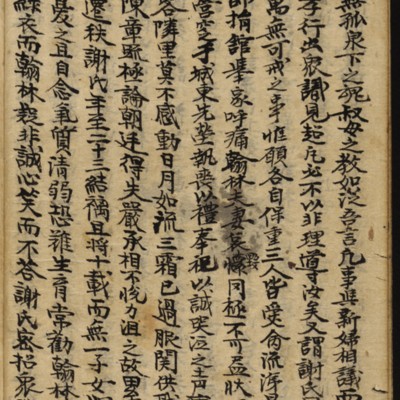 無孤泉下之魂叔母之教如從吾言凡事與新婦相議而
孝行出衆識見起凡必不以非理導汝矣又謂謝氏
萬無可戒之事惟願各自保重三人皆 流涕是
師捐館擧家呼痛翰林夫妻哀慟罔極不可盡狀
營葬于城東先塋執喪以禮奉祀以誠哭泣之声
各隣里莫不感動日月如流三霜已過服闋供職
陳章疏極論朝廷得失嚴承相不悅力沮之故累
遷秩謝氏年至二十三結褵且將十載而無一子女
憂之且自念氣質清弱恐難生育常勸翰林
綠衣而翰林疑非誠心笑而不答謝氏密招衆